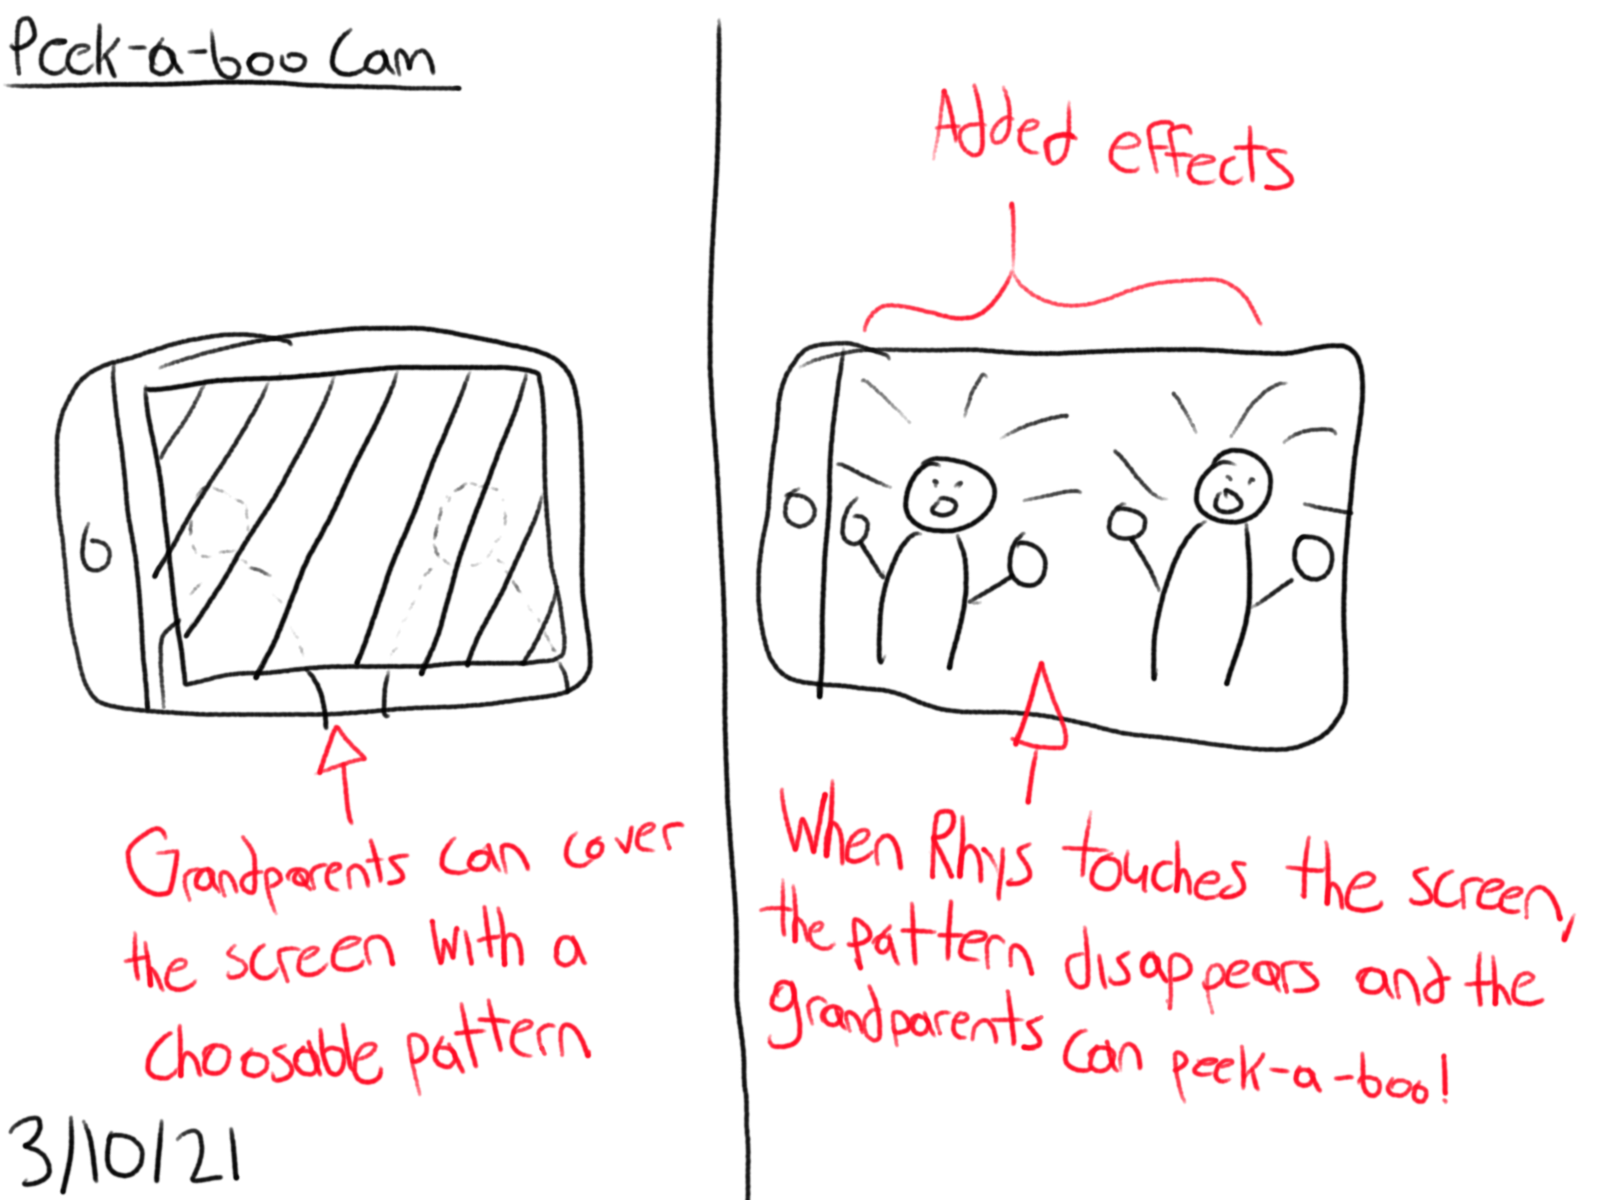 Peek-a-boo Cam
Grandparents can cover
the screen with a
choosable pattern
3/10/21
Added effects
When Rhys touches the screen,
the pattern disappears and the
grandparents can peek-a-boo!